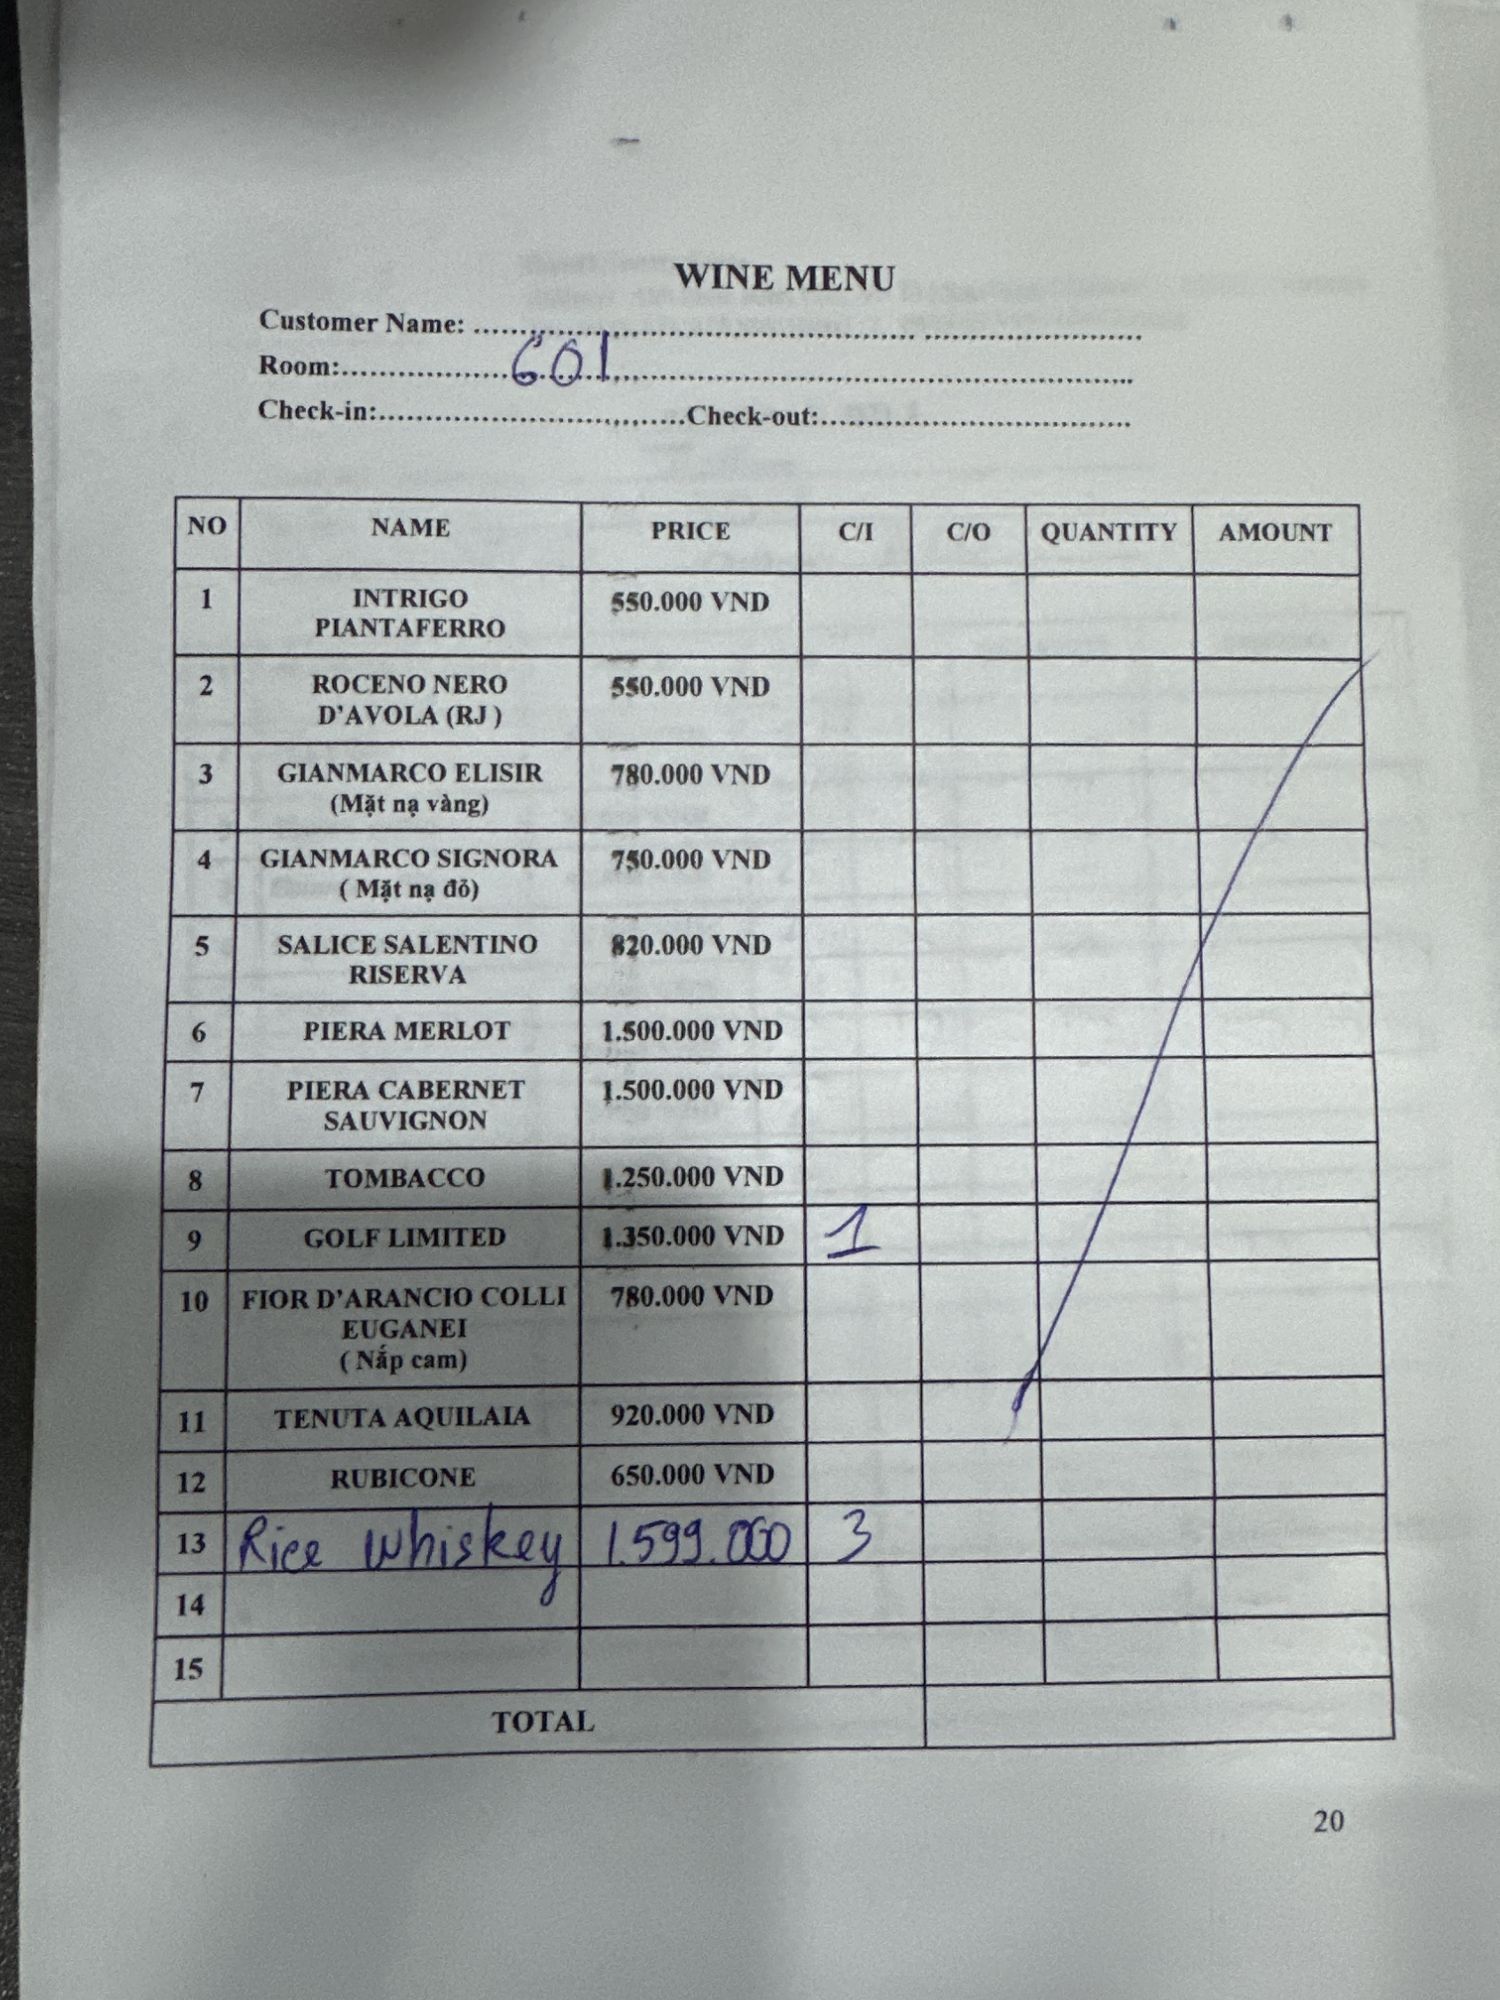 WINE MENU
Customer Name: ........................................................................................
Room:..................601..............................................................................
Check-in:..................................Check-out:..................................
NO NAME PRICE C/I C/O QUANTITY AMOUNT
1 INTRIGO PIANTAFERRO 550.000 VND
2 ROCENO NERO D'AVOLA (RJ ) 550.000 VND
3 GIANMARCO ELISIR (Mặt nạ vàng) 780.000 VND
4 GIANMARCO SIGNORA ( Mặt nạ đỏ) 750.000 VND
5 SALICE SALENTINO RISERVA 820.000 VND
6 PIERA MERLOT 1.500.000 VND
7 PIERA CABERNET SAUVIGNON 1.500.000 VND
8 TOMBACCO 1.250.000 VND
9 GOLF LIMITED 1.350.000 VND 1
10 FIOR D'ARANCIO COLLI EUGANEI ( Nắp cam) 780.000 VND
11 TENUTA AQUILAIA 920.000 VND
12 RUBICONE 650.000 VND
13 Rice whiskey 1.599.000 3
14
15
TOTAL
20